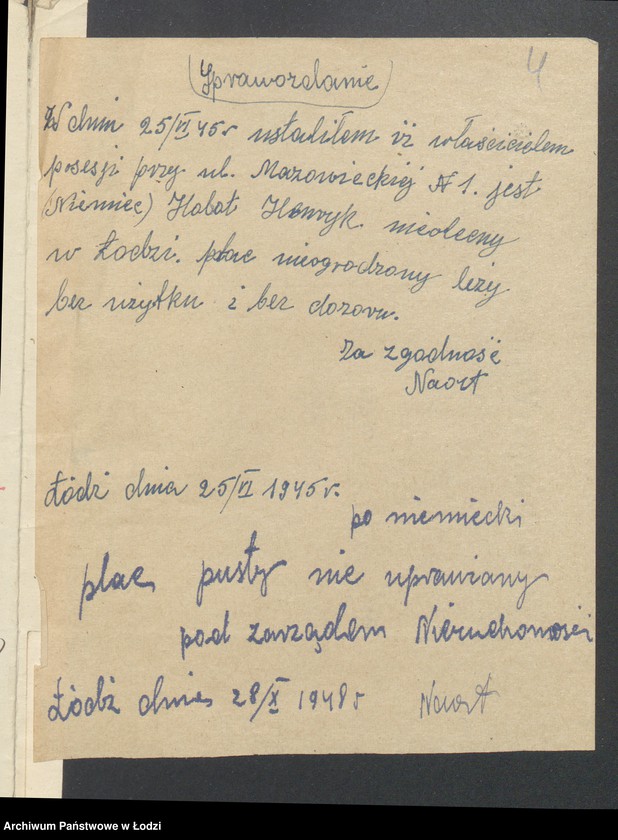 4
Sprawozdanie
W dniu 25/VI 45r ustaliłem iż właścicielem
posesji przy ul. Mazowieckiej № 1. jest
(Niemiec) Habot Henryk. nieobecny
w Łodzi. plac nieogrodzony leży
bez użytku i bez dozoru.
Za zgodność
Łódź dnia 25/VI 1945r.
po niemiecki
plac pusty nie uprawiany
pod zarządem Nieruchomości
Łódź dnia 28/X 1948r
Archiwum Państwowe w Łodzi